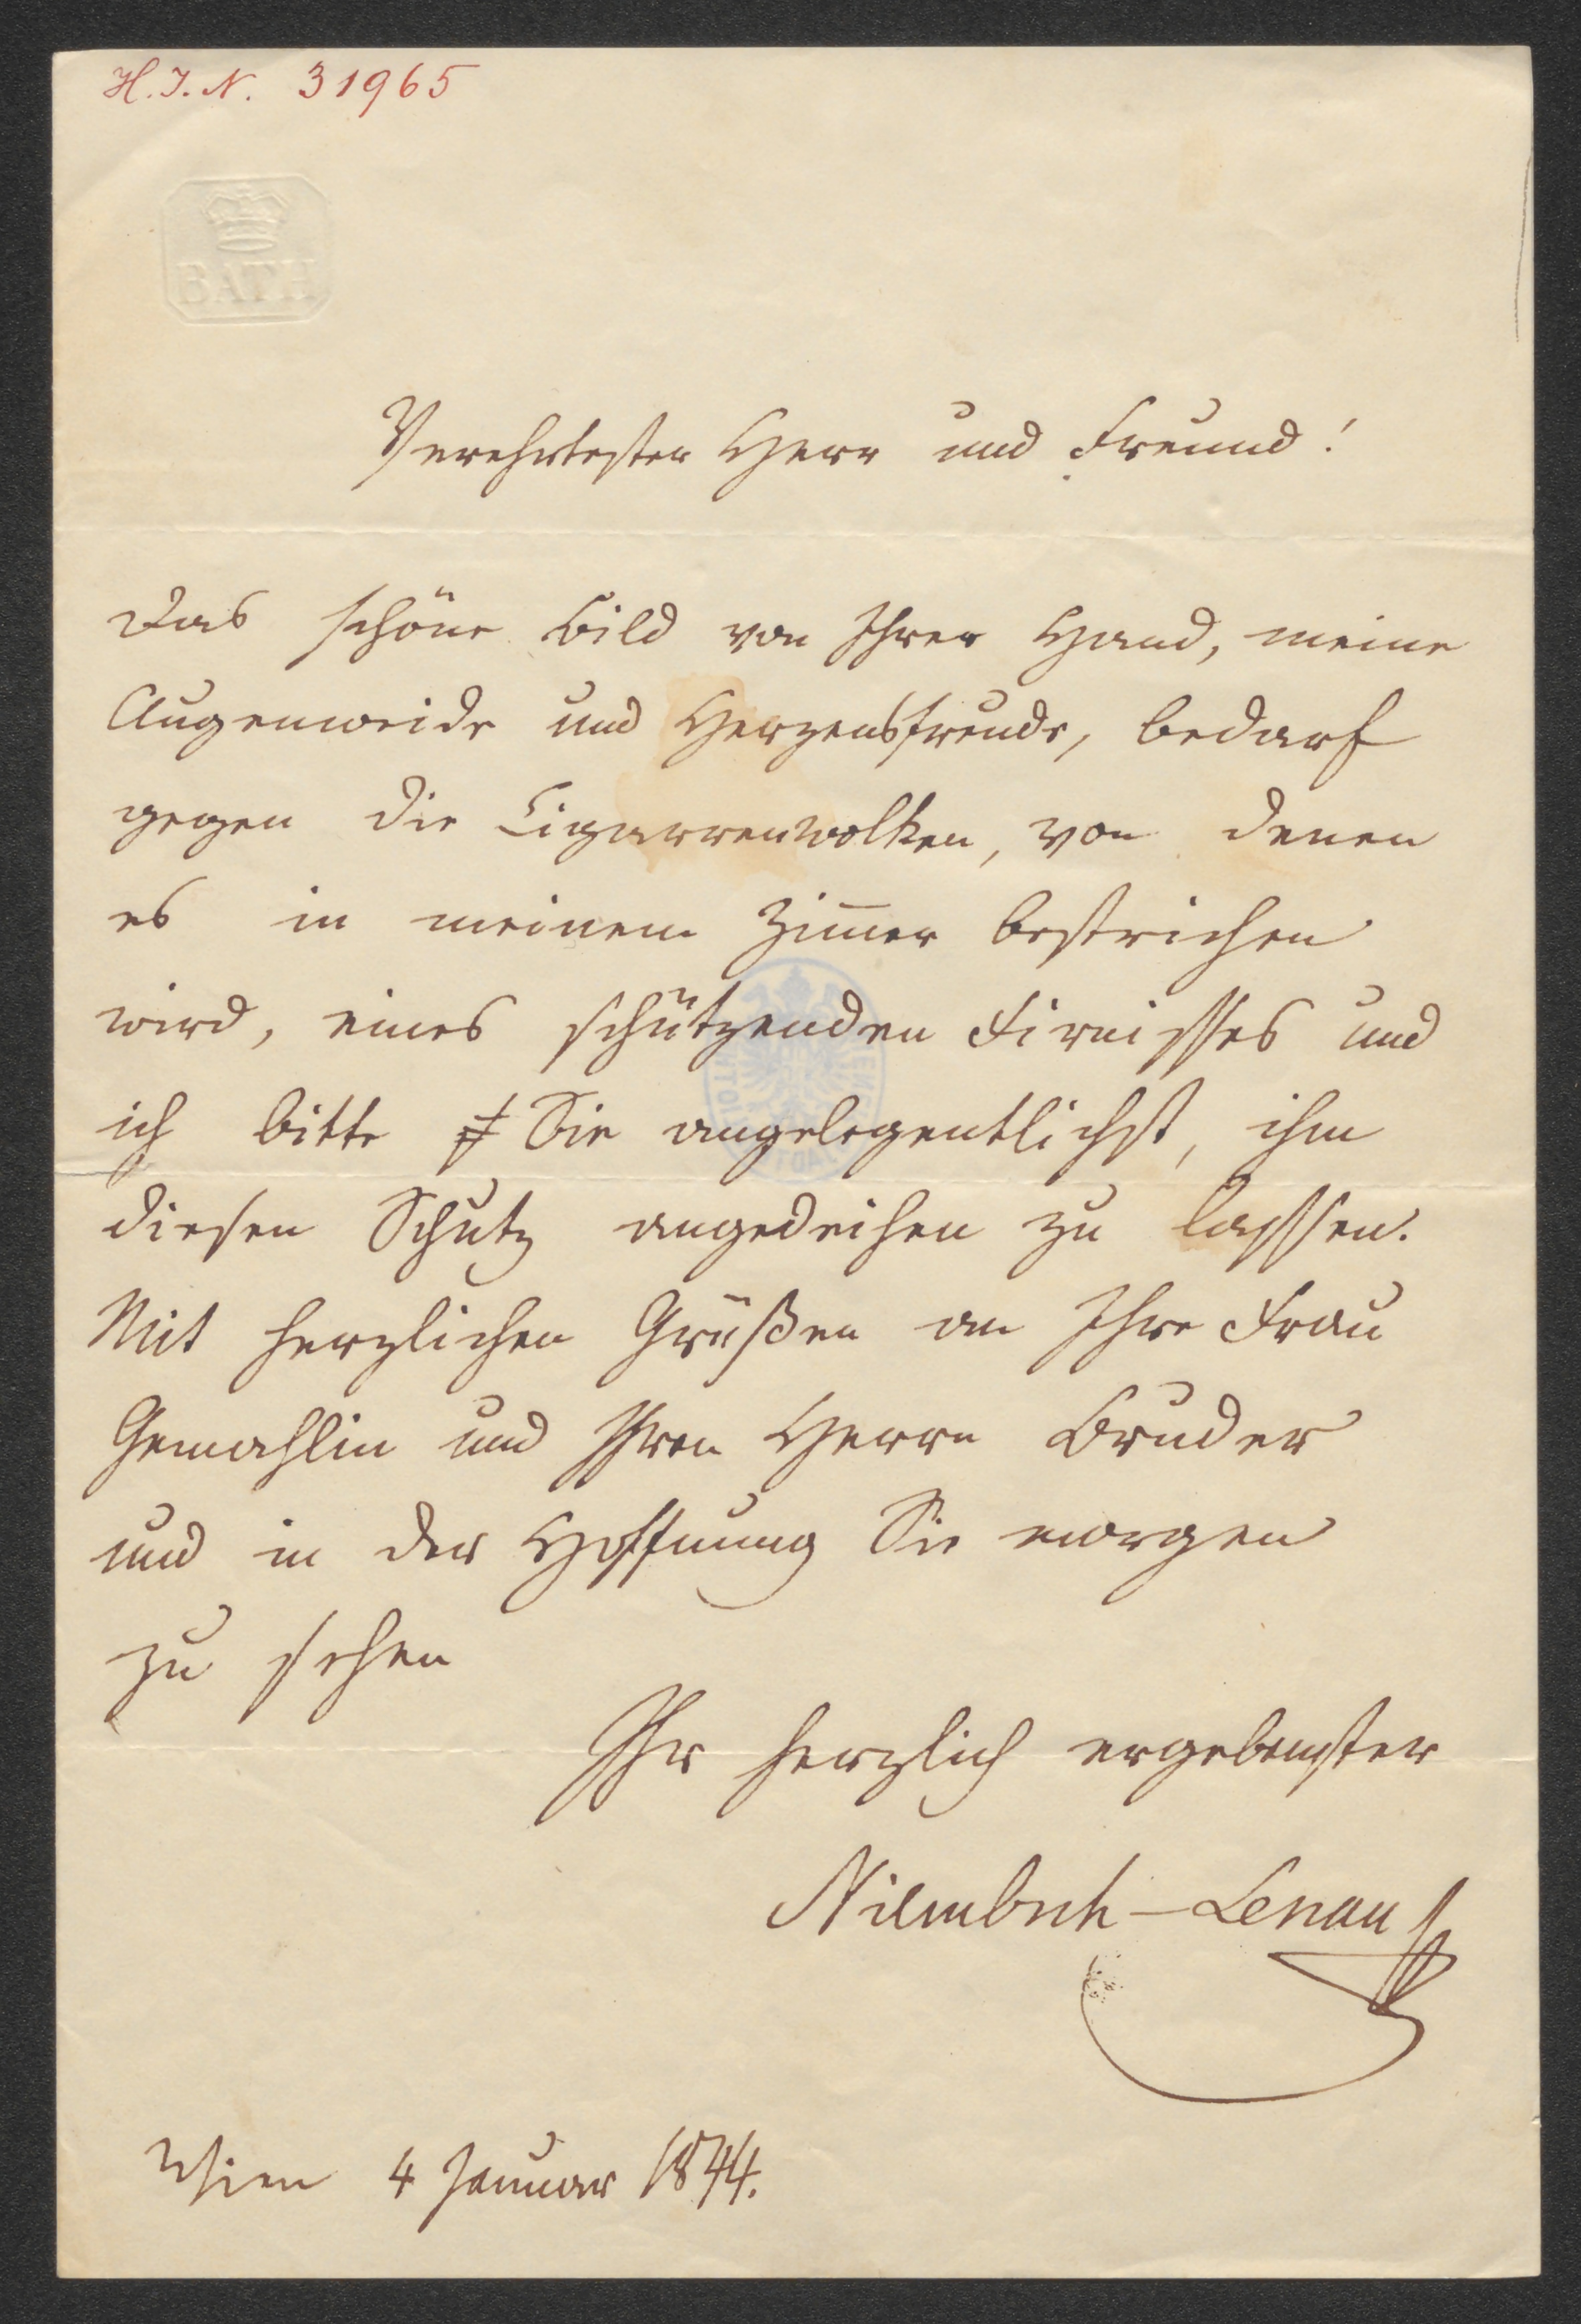 H.I.N. 31965
BATH
Verehrtester Herr und Freund!
Das schöne Bild von Ihrer Hand, meine
Augenweide und Herzensfreude, bedarf
gegen die Cigarrenwolken, von denen
es in meinem Zim̅er bestrichen
wird, eines schützenden Firnisses und
ich bitte Sie angelegentlichst, ihm
diesen Schutz angedeihen zu lassen.
Mit herzlichen Grüßen an Ihre Frau
Gemahlin und Ihren Herrn Bruder
und in der Hoffnung Sie morgen
zu sehen
Ihr herzlich ergebenster
Niembsch-Lenau
Wien 4 Januar 1844.